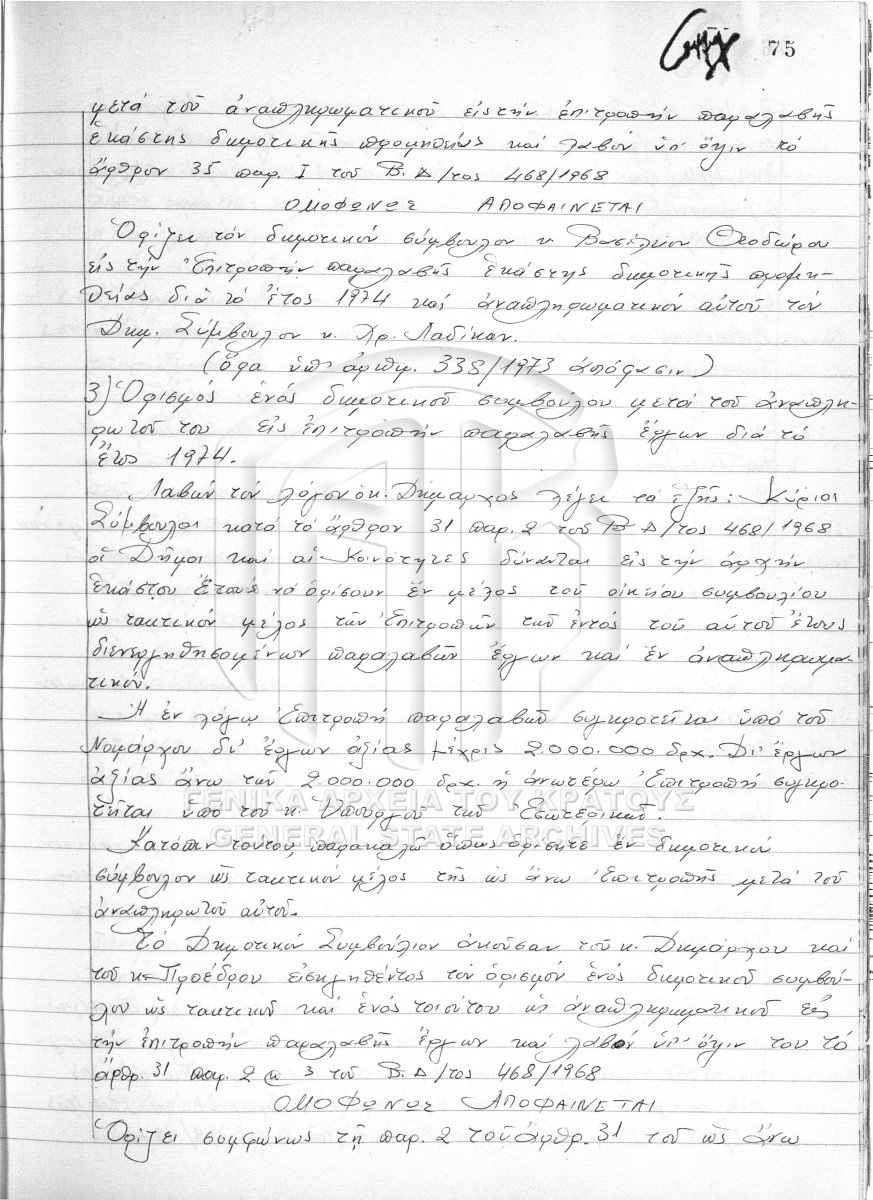 75
μετά τοῦ ἀναπληρωματικοῦ εἰς τήν ἐπιτροπήν παραλαβῆς
ἑκάστης δημοτικῆς προμηθείας καί λαβόν ὑπ' ὄψιν τό
ἄρθρον 35 παρ. Ι τοῦ Β.Δ/τος 468/1968
ΟΜΟΦΩΝΩΣ ΑΠΟΦΑΙΝΕΤΑΙ
Ὁρίζει τόν δημοτικόν σύμβουλον κ. Βασίλειον Θεοδώρου
εἰς τήν Ἐπιτροπήν παραλαβῆς ἑκάστης δημοτικῆς προμη-
θείας διά τό ἔτος 1974 καί ἀναπληρωματικόν αὐτοῦ τόν
Δημ. Σύμβουλον κ. Χρ. Λαδίκαν.
(ὅρα ὑπ' ἀριθμ. 338/1973 ἀπόφασιν)
3) Ὁρισμός ἑνός δημοτικοῦ συμβούλου μετά τοῦ ἀναπλη-
ρωτοῦ του εἰς ἐπιτροπήν παραλαβῆς ἔργων διά τό
ἔτος 1974.
Λαβών τόν λόγον ὁ κ. Δήμαρχος λέγει τά ἑξῆς: Κύριοι
Σύμβουλοι κατά τό ἄρθρον 31 παρ. 2 τοῦ Β Δ/τος 468/1968
οἱ Δῆμοι καί αἱ Κοινότητες δύνανται εἰς τήν ἀρχήν
ἑκάστου ἔτους νά ὁρίσουν ἕν μέλος τοῦ οἰκείου συμβουλίου
ὡς τακτικόν μέλος τῶν Ἐπιτροπῶν τῶν ἐντός τοῦ αὐτοῦ ἔτους
διενεργηθησομένων παραλαβῶν ἔργων καί ἕν ἀναπληρωμα-
τικόν.
Ἡ ἐν λόγῳ Ἐπιτροπή παραλαβῶν συγκροτεῖται ὑπό τοῦ
Νομάρχου δι' ἔργων ἀξίας μέχρις 2.000.000 δρχ. Δι' ἔργων
ἀξίας ἄνω τῶν 2.000.000 δρχ. ἡ ἀνωτέρω Ἐπιτροπή συγκρο-
τῆται ὑπό τοῦ κ. Ὑπουργοῦ τῶν Ἐσωτερικῶν.
ΓΕΝΙΚΑ ΑΡΧΕΙΑ ΤΟΥ ΚΡΑΤΟΥΣ
GENERAL STATE ARCHIVES
Κατόπιν τούτου, παρακαλῶ ὅπως ὁρίσητε ἕν δημοτικόν
σύμβουλον ὡς τακτικόν μέλος τῆς ὡς ἄνω Ἐπιτροπῆς μετά τοῦ
ἀναπληρωτοῦ αὐτοῦ.
Τό Δημοτικόν Συμβούλιον ἀκοῦσαν τοῦ κ. Δημάρχου καί
τοῦ κ. Προέδρου εἰσηγηθέντος τόν ὁρισμόν ἑνός δημοτικοῦ συμβού-
λου ὡς τακτικοῦ καί ἑνός τοιούτου ὡς ἀναπληρωματικοῦ εἰς
τήν ἐπιτροπήν παραλαβῆς ἔργων καί λαβόν ὑπ' ὄψιν του τό
ἄρθρ. 31 παρ. 2 3 τοῦ Β.Δ/τος 468/1968
ΟΜΟΦΩΝΩΣ ΑΠΟΦΑΙΝΕΤΑΙ
Ὁρίζει συμφώνως τῇ παρ. 2 τοῦ ἄρθρ. 31 τοῦ ὡς ἄνω